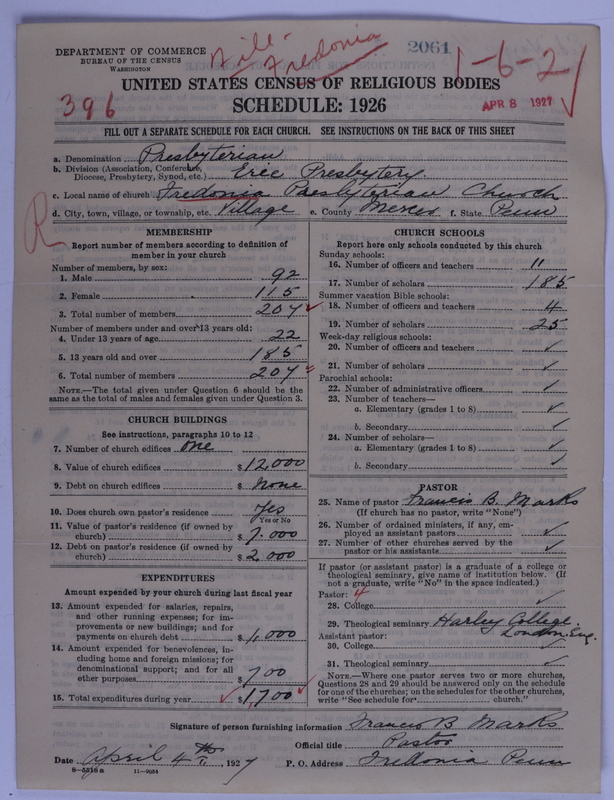 DEPARTMENT OF COMMERCE
BUREAU OF THE CENSUS
WASHINGTON
Fredonia
2061
1-6-2
396
APR 8 1927
UNITED STATES CENSUS OF RELIGIOUS BODIES
SCHEDULE: 1926
FILL OUT A SEPARATE SCHEDULE FOR EACH CHURCH. SEE INSTRUCTIONS ON THE BACK OF THIS SHEET
a. Denomination Presbyterian
b. Division (Association, Conference, Diocese, Presbytery, Synod, etc.) Erie Presbytery.
c. Local name of church Fredonia Presbyterian Church
d. City, town, village, or township, etc. Village e. County Mercer f. State Penn
R
MEMBERSHIP
Report number of members according to definition of
member in your church
Number of members, by sex:
1. Male 92
2. Female 115
3. Total number of members 207 ✓
Number of members under and over 13 years old:
4. Under 13 years of age 22
5. 13 years old and over 185
6. Total number of members 207 ✓
NOTE.—The total given under Question 6 should be
same as the total of males and females given under Question 3.
CHURCH BUILDINGS
See instructions, paragraphs 10 to 12
7. Number of church edifices one
8. Value of church edifices $ 12,000
9. Debt on church edifices $ None
10. Does church own pastor's residence Yes
Yes or No
11. Value of pastor's residence (if owned by
church) $ 7.000
12. Debt on pastor's residence (if owned by
church) $ 2,000
EXPENDITURES
Amount expended by your church during last fiscal year
13. Amount expended for salaries, repairs,
and other running expenses; for im-
provements or new buildings; and for
payments on church debt $ 1,000
14. Amount expended for benevolences, in-
cluding home and foreign missions; for
denominational support; and for all
other purposes $ 700
15. Total expenditures during year ✓ $ 1700 ✓
CHURCH SCHOOLS
Report here only schools conducted by this church
Sunday schools:
16. Number of officers and teachers 11
17. Number of scholars 185
Summer vacation Bible schools:
18. Number of officers and teachers 4
19. Number of scholars 25
Week-day religious schools:
20. Number of officers and teachers ✓
21. Number of scholars ✓
Parochial schools:
22. Number of administrative officers ✓
23. Number of teachers—
a. Elementary (grades 1 to 8) ✓
b. Secondary ✓
24. Number of scholars—
a. Elementary (grades 1 to 8) ✓
b. Secondary ✓
PASTOR
25. Name of pastor Francis B. Marks
(If church has no pastor, write "None")
26. Number of ordained ministers, if any, em-
ployed as assistant pastors ✓
27. Number of other churches served by the
pastor or his assistants ✓
If pastor (or assistant pastor) is a graduate of a college or
theological seminary, give name of institution below. (If
not a graduate, write "No" in the space indicated.)
Pastor: 4
28. College ✓
29. Theological seminary Harley College London, Eng.
Assistant pastor:
30. College ✓
31. Theological seminary ✓
NOTE.—Where one pastor serves two or more churches,
Questions 28 and 29 should be answered only on the schedule
for one of the churches; on the schedules for the other churches,
write "See schedule for church."
Signature of person furnishing information Francis B Marks
Official title Pastor
Date April 4th, 1927 P. O. Address Fredonia Penn
8—5516a 11—9034